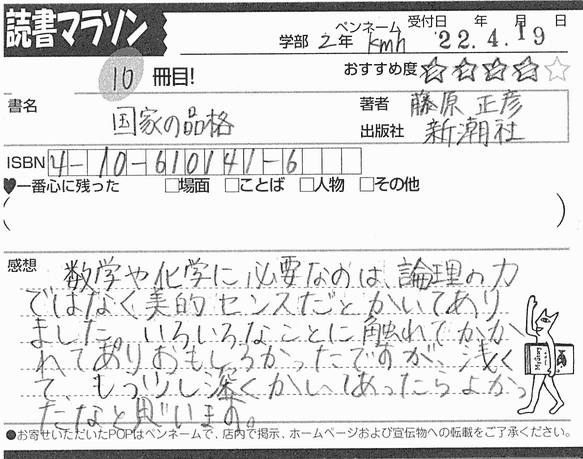 読書マラソン
学部 2年 ペンネーム kmh 受付日 年 月 日 '22.4.19
10 冊目!
おすすめ度 ★★★★☆
書名 国家の品格
著者 藤原 正彦
出版社 新潮社
ISBN 4-10-610141-6
♥一番心に残った □場面 □ことば □人物 □その他
感想 数学や化学に必要なのは、論理の力
ではなく美的センスだとかいてあり
ました。いろいろなことに触れてかか
れてありおもしろかったですが、浅く
て、もう少し深くかいてあったらよかっ
たなと思います。
Mystery
●お寄せいただいたPOPはペンネームで、店内で掲示、ホームページおよび宣伝物への転載をご了承ください。